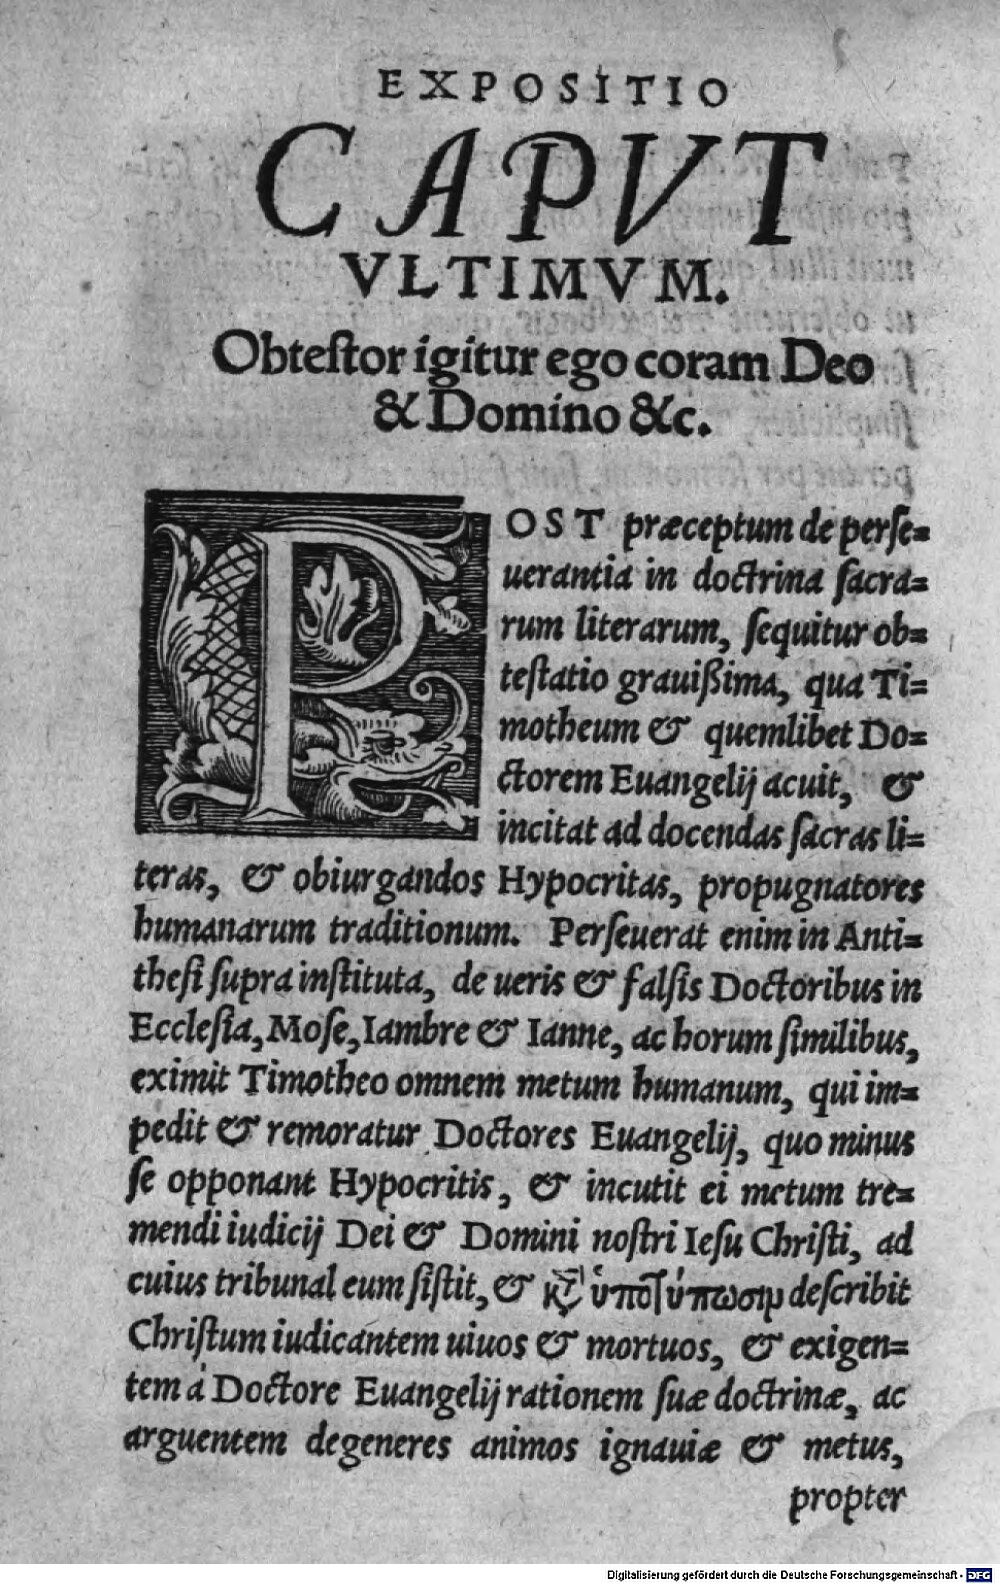 EXPOSITIO
CAPVT
VLTIMVM.
Obteſtor igitur ego coram Deo
& Domino &c.
POST præceptum de perſe=
uerantia in doctrina ſacra=
rum literarum, ſequitur ob=
teſtatio grauißima, qua Ti=
motheum & quemlibet Do=
ctorem Euangelij acuit, &
incitat ad docendas ſacras li=
teras, & obiurgandos Hypocritas, propugnatores
humanarum traditionum. Perſeuerat enim in Anti=
theſi ſupra inſtituta, de ueris & falſis Doctoribus in
Eccleſia, Moſe, Iambre & Ianne, ac horum ſimilibus,
eximit Timotheo omnem metum humanum, qui im=
pedit & remoratur Doctores Euangelij, quo minus
ſe opponant Hypocritis, & incutit ei metum tre=
mendi iudicij Dei & Domini noſtri Ieſu Chriſti, ad
cuius tribunal eum ſiſtit, & κατ' ὑποτύπωσιν deſcribit
Chriſtum iudicantem uiuos & mortuos, & exigen=
tem à Doctore Euangelij rationem ſuæ doctrinæ, ac
arguentem degeneres animos ignauiæ & metus,
propter
Digitalisierung gefördert durch die Deutsche Forschungsgemeinschaft - DFG